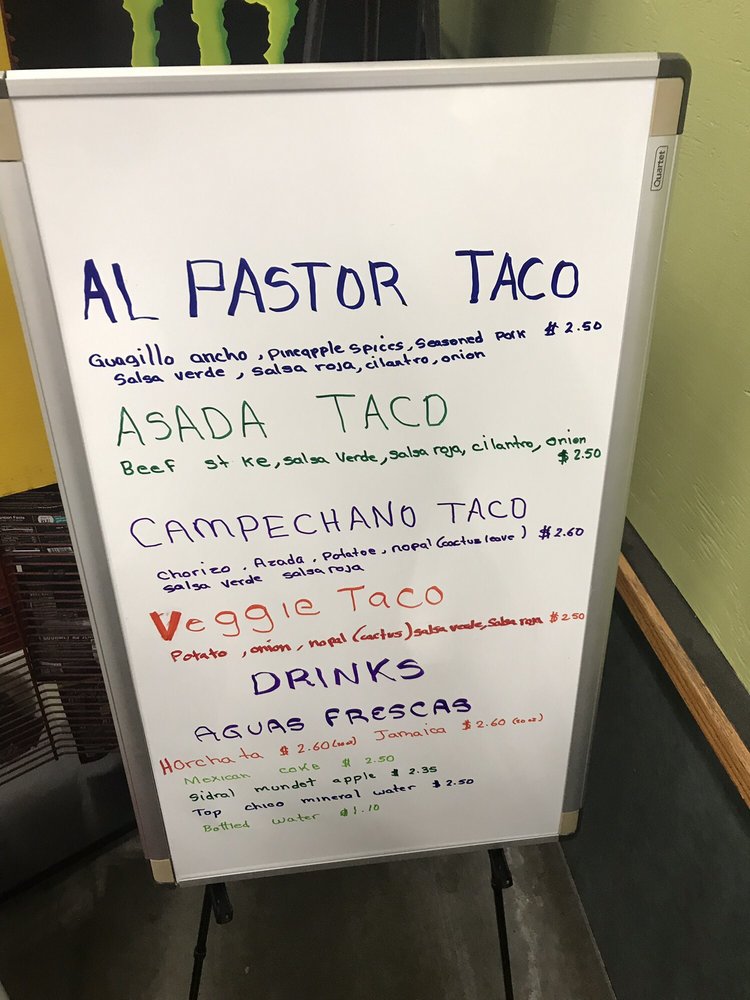 Quartet
AL PASTOR TACO
Guagillo ancho, Pineapple Spices, Seasoned Pork $2.50
Salsa verde, salsa roja, cilantro, onion
ASADA TACO
Beef st ke, salsa Verde, salsa roja, cilantro, onion
$2.50
CAMPECHANO TACO
Chorizo, Azada, Potatoe, nopal (cactus leave) $2.60
salsa verde salsa roja
Veggie Taco
Potato, onion, nopal (cactus) salsa verde, Salsa roja $2.50
DRINKS
AGUAS FRESCAS
Horchata $2.60 (20oz) Jamaica $2.60 (20oz)
Mexican coke $2.50
Sidral mundet apple $2.35
Top chico mineral water $2.50
Bottled water $1.10